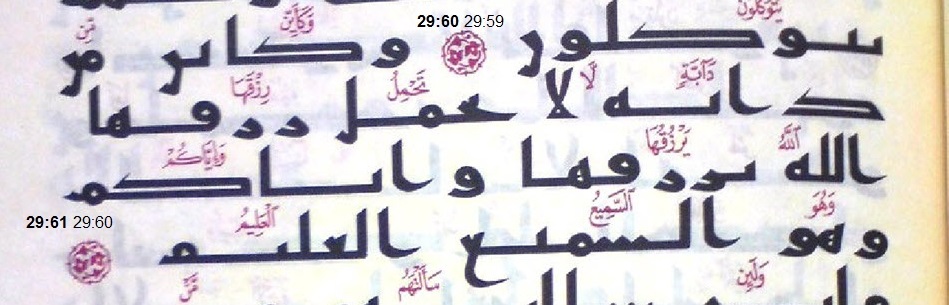 يَتَوَكَّلُونَ
29:60 29:59
وَكَأَيِّن
مِّن
ىىوكلور وكاىر مر
دَآبَّةٍ
لَّا
تَحْمِلُ
رِزْقَهَا
داىه لا ىحمل ررقها
ٱللَّهُ
يَرْزُقُهَا
وَإِيَّاكُمْ
الله ىررقها واىاكم
وَهُوَ
ٱلسَّمِيعُ
ٱلْعَلِيمُ
وهو السمىع العلىم
29:61 29:60
وَلَئِن
سَأَلْتَهُم
مَّنْ